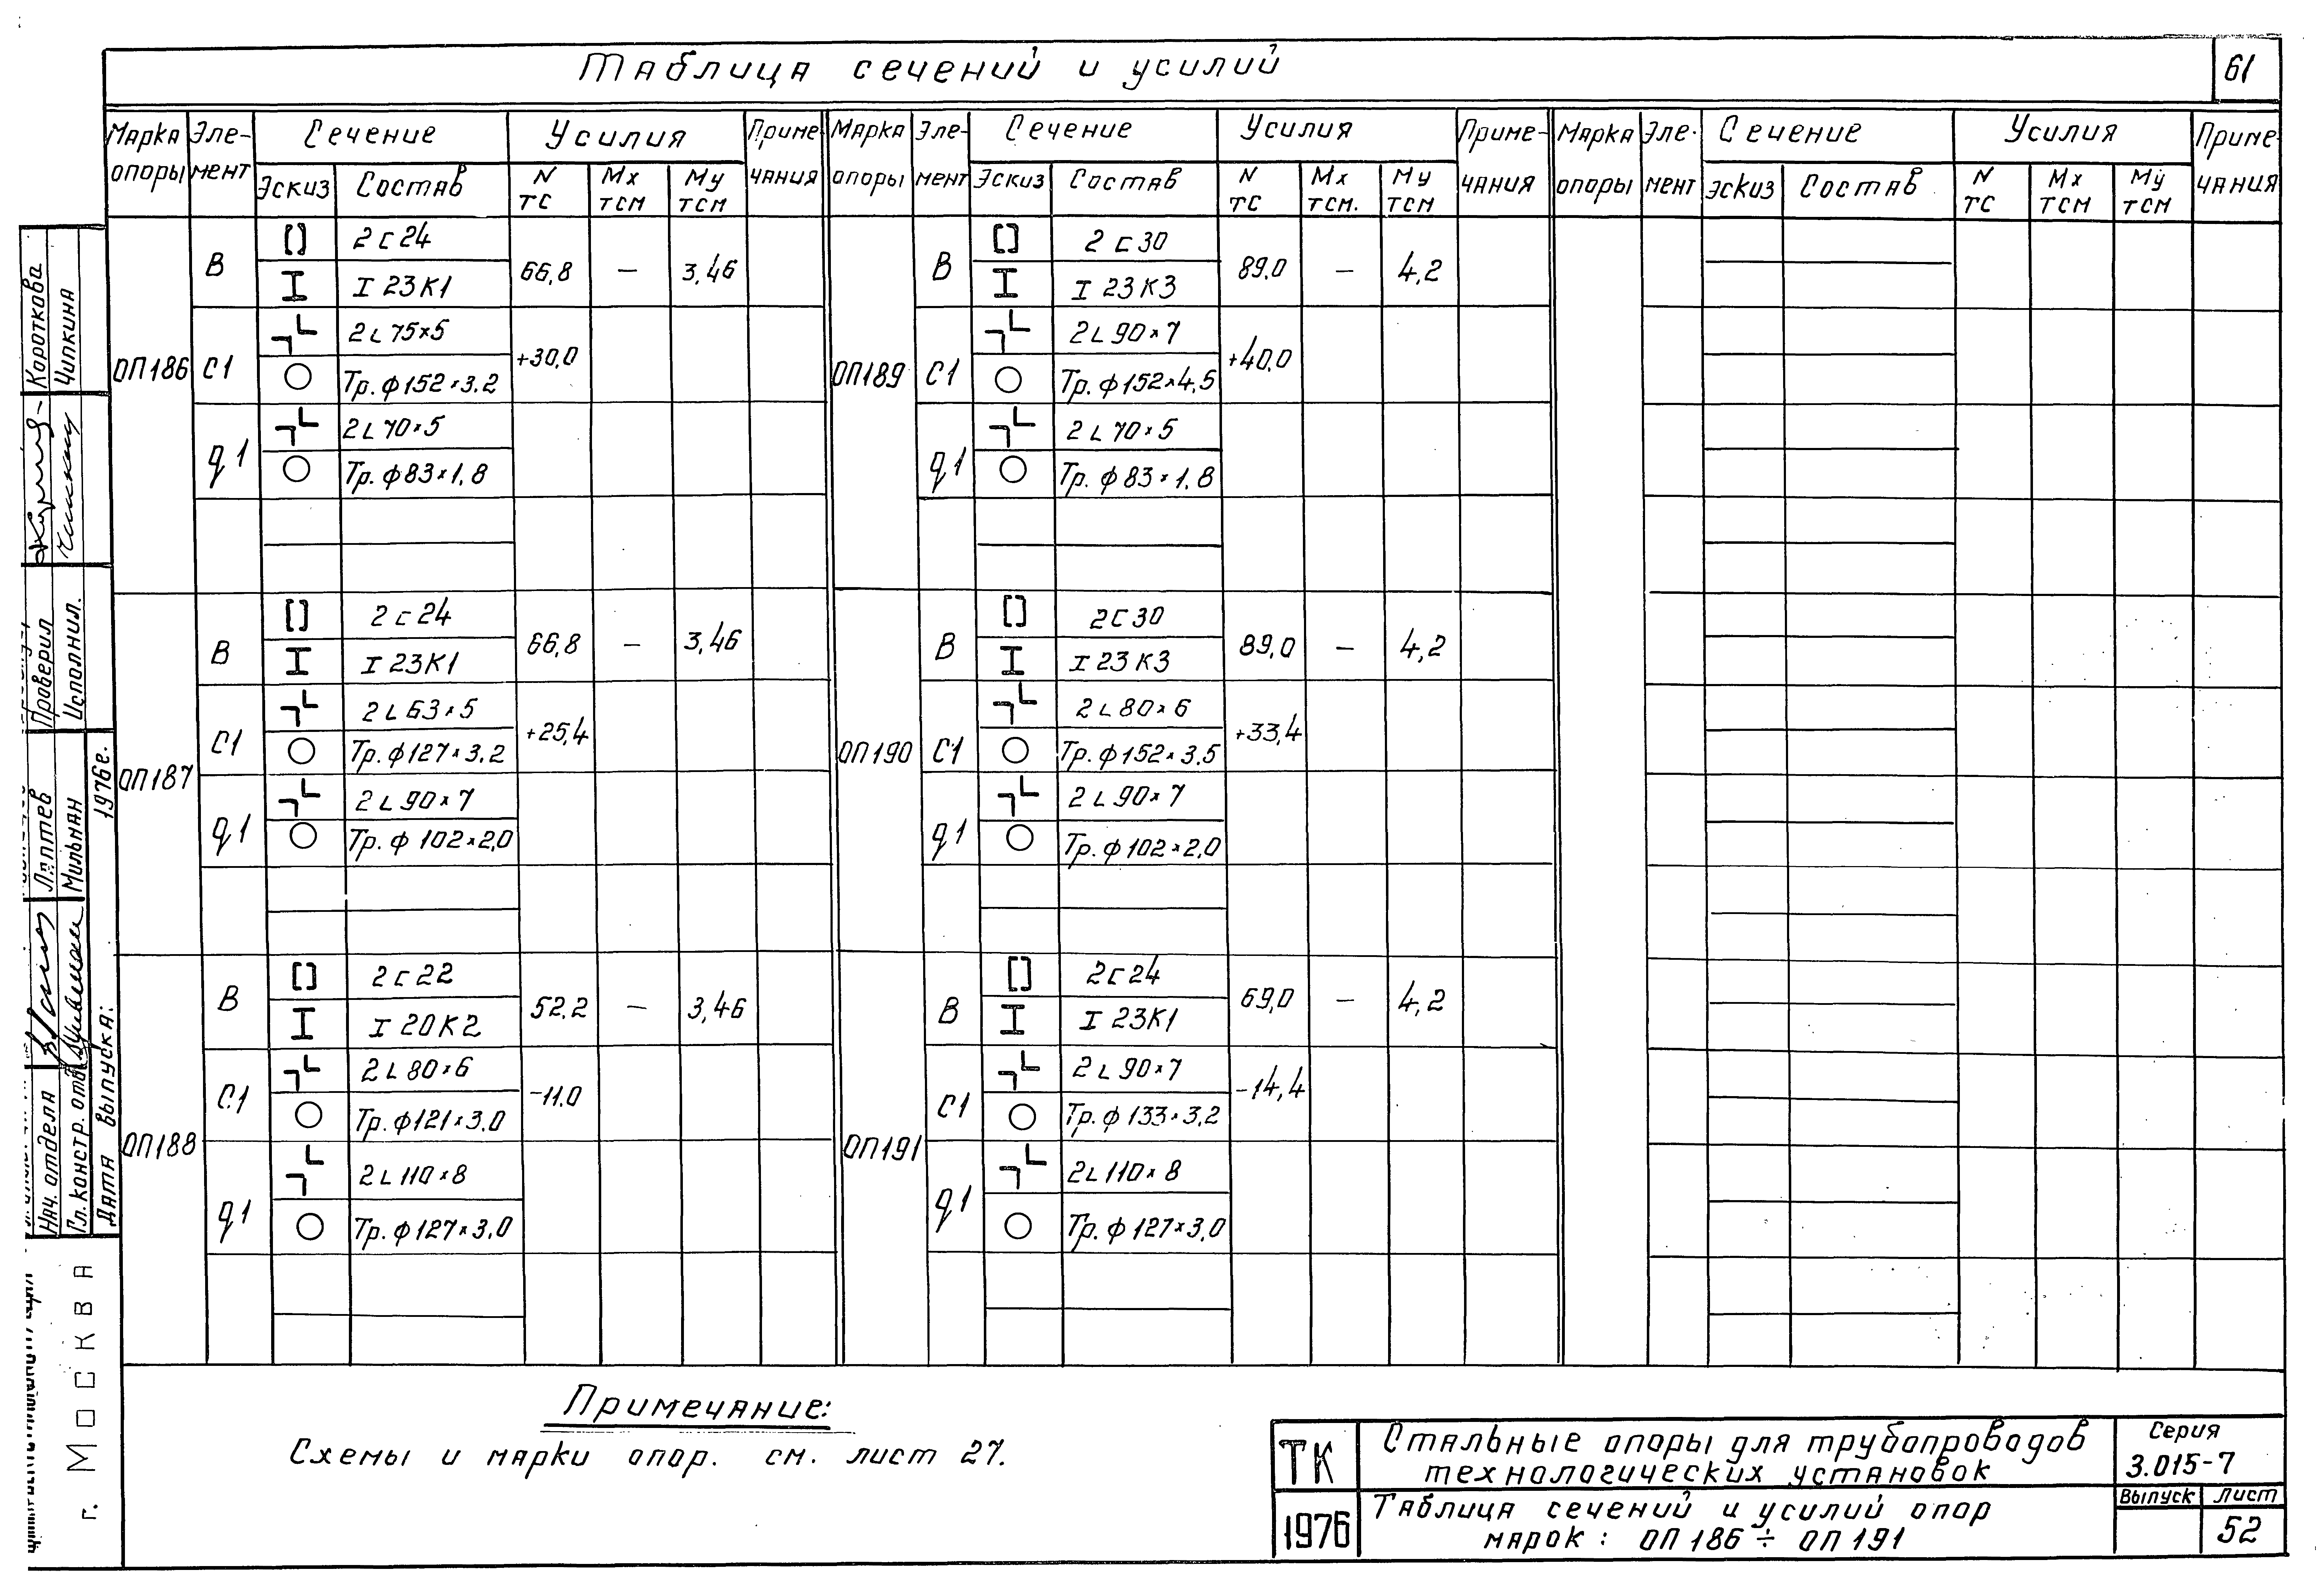 Таблица сечений и усилий
61
Марка опоры Эле-мент Сечение Усилия Приме-чания Марка опоры Эле-мент Сечение Усилия Приме-чания Марка опоры Эле-мент Сечение Усилия Приме-чания
Эскиз Состав N тс Мх тсм Му тсм Эскиз Состав N тс Мх тсм. Му тсм Эскиз Состав N тс Мх тсм Му тсм
ОП186
В 2 С 24 66,8 – 3,46
I 23К1
С1 2 L 75×5 +30,0
Тр. ф152×3.2
q1 2 L 70×5
Тр. ф83×1,8
ОП187
В 2 С 24 66,8 – 3,46
I 23К1
С1 2 L 63×5 +25,4
Тр. ф127×3.2
q1 2 L 90×7
Тр. ф 102×2,0
ОП188
В 2 С 22 52.2 – 3,46
I 20К2
С1 2 L 80×6 -11.0
Тр. ф121×3,0
q1 2 L 110×8
Тр. ф127×3,0
ОП189
В 2 С 30 89,0 – 4,2
I 23К3
С1 2 L 90×7 +40,0
Тр. ф152×4,5
q1 2 L 70×5
Тр. ф 83×1.8
ОП190
В 2 С 30 89,0 – 4,2
I 23К3
С1 2 L 80×6 +33,4
Тр. ф152×3,5
q1 2 L 90×7
Тр. ф102×2,0
ОП191
В 2 С 24 69,0 – 4,2
I 23К1
С1 2 L 90×7 -14,4
Тр. ф 133×3,2
q1 2 L 110×8
Тр. ф 127×3,0
Примечание:
Схемы и марки опор. см. лист 27.
ТК
1976
Стальные опоры для трубопроводов
технологических установок
Таблица сечений и усилий опор
марок: ОП 186 ÷ ОП 191
Серия
3.015-7
Выпуск Лист
52
Короткова
Чипкина
Проверил
Исполнил.
Лаптев
Мильман
1976г.
Нач. отдела
Гл. констр. отд.
Дата выпуска:
г. Москва